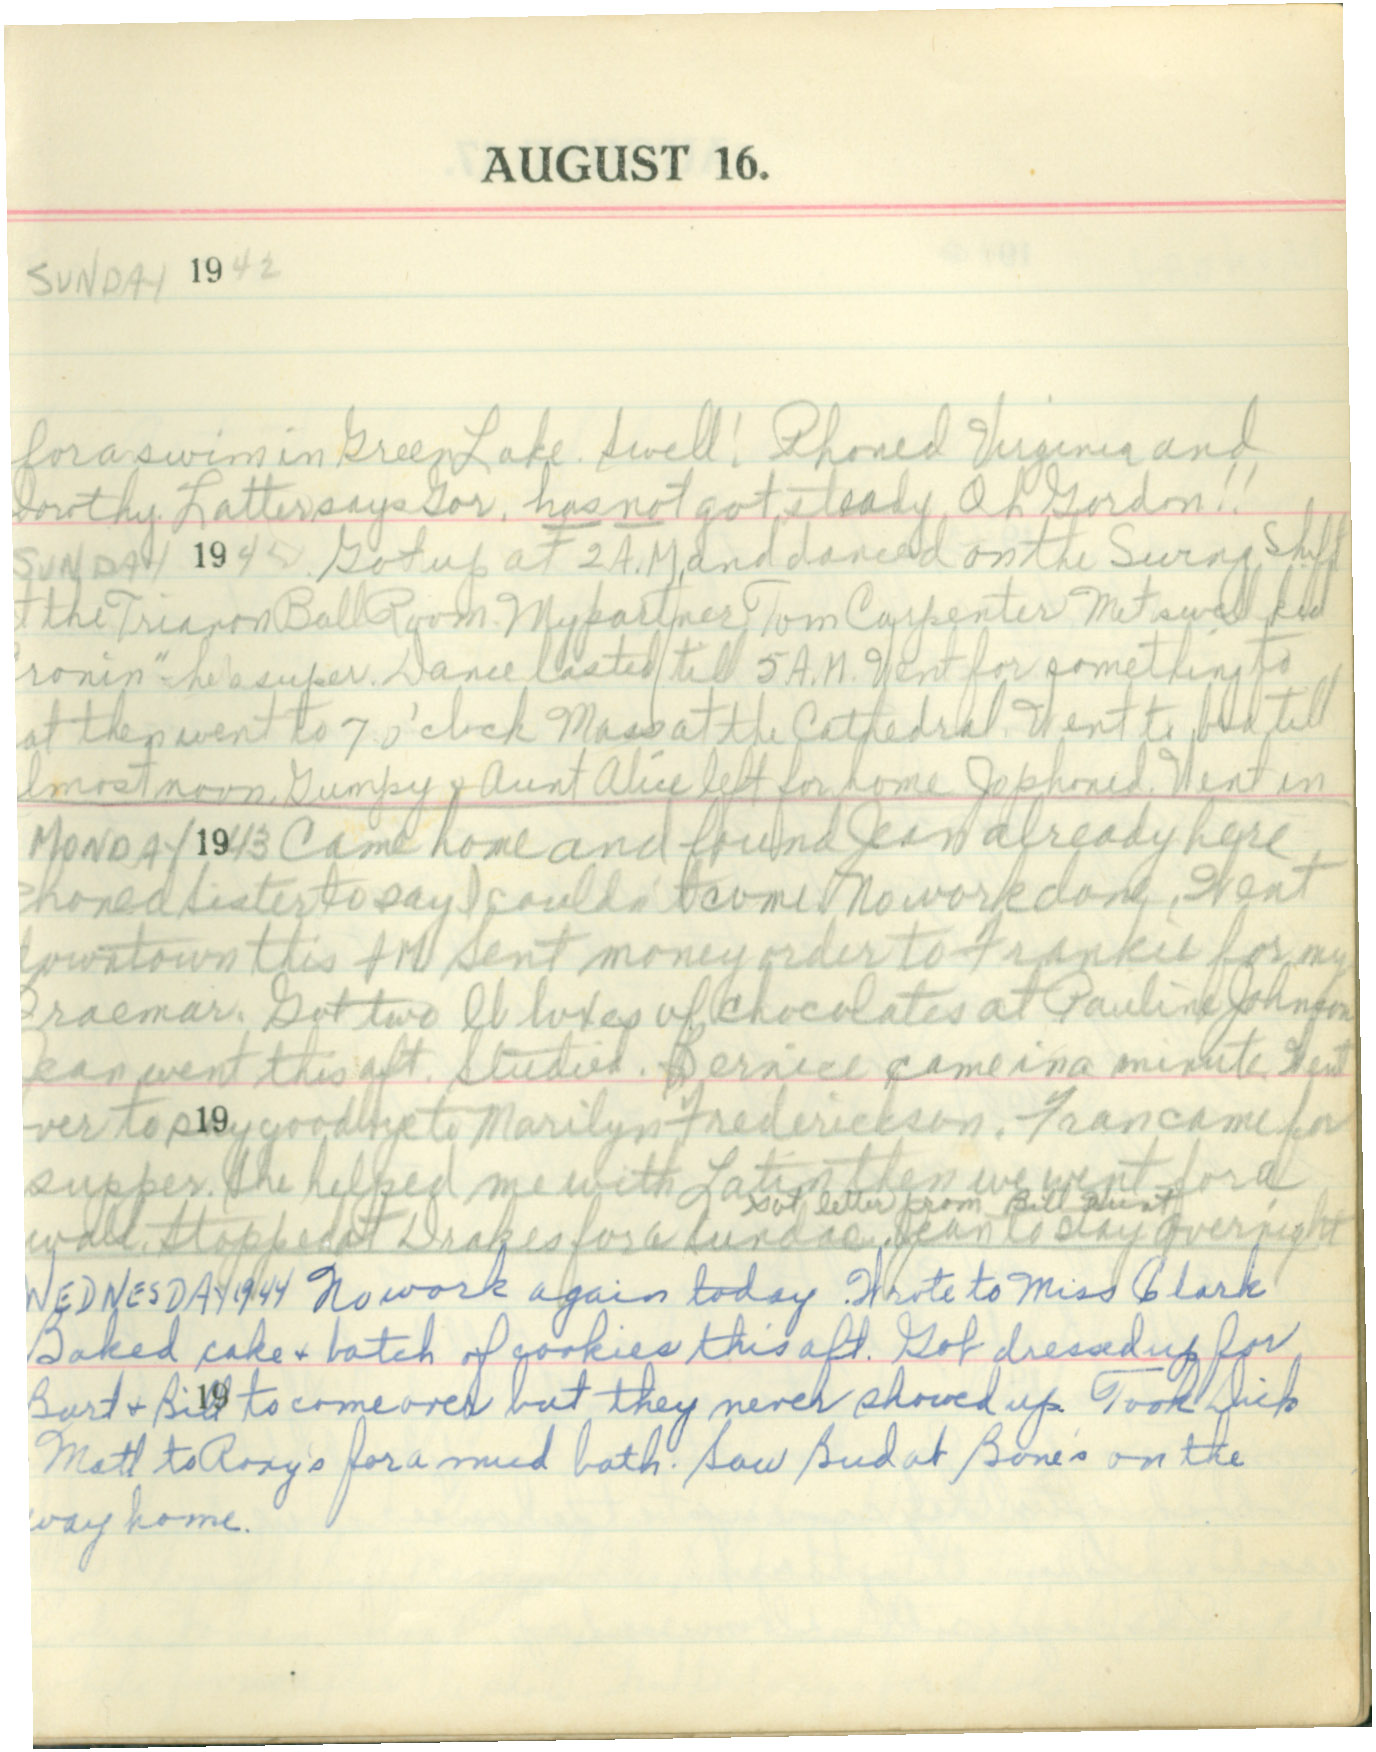 AUGUST 16.
SUNDAY 1942
for a swim in Green Lake. Swell! Phoned Virginia and
Dorothy. Latter says Gor. has not got steady. Oh Gordon!!
SUNDAY 194 Got up at 2 A.M. and danced on the Swing Shift
t the Trianon Ball Room. My partner Tom Carpenter Met swell kid
ronin" - he's super. Dance lasted till 5 A.M. Went for something to
at then went to 7 o'clock Mass at the Cathedral. Went to bed till
lmost noon. Gumpy & Aunt Alice left for home Jo phoned. Went in
MONDAY 1943 Came home and found Jean already here
Phoned Sister to say I couldn't come. No work done. Went
downtown this AM Sent money order to Frankie for my
Braemar. Got two lb boxes of chocolates at Pauline Johnson
Jean went this aft. Studied. Bernice came in a minute. Went
ver to say goodbye to Marilyn Frederickson. Fran came for
19
supper. She helped me with Latin then we went for a
Got letter from Bill Hunt
walk. Stopped at Drakes for a sundae. Jean to stay overnight
WEDNESDAY 1944 No work again today. Wrote to Miss Clark
Baked cake & batch of cookies this aft. Got dressed up for
Burt & Bill to come over but they never showed up. Took Dick
19
Matt to Roxy's for a mud bath. Saw Bud at Bone's on the
way home.